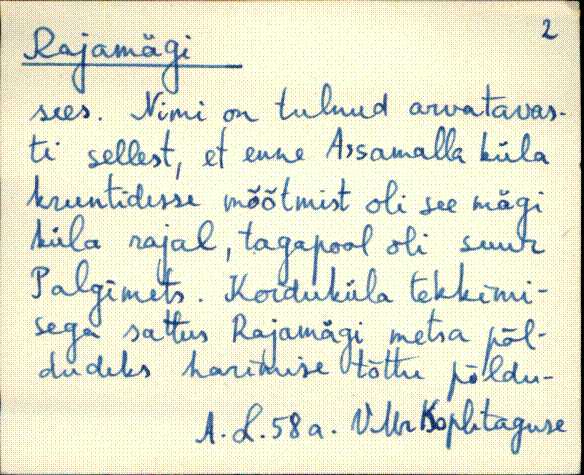 2
Rajamägi
sees. Nimi on tulnud arvatavas-
ti sellest, et enne Assamalla küla
kruntidesse mõõtmist oli see mägi
küla rajal, tagapool oli suur
Palgimets. Koiduküla tekkimi-
sega sattus Rajamägi metsa põl-
dudeks harimise tõttu põldu-
A. L. 58 a. VMr Koplitaguse